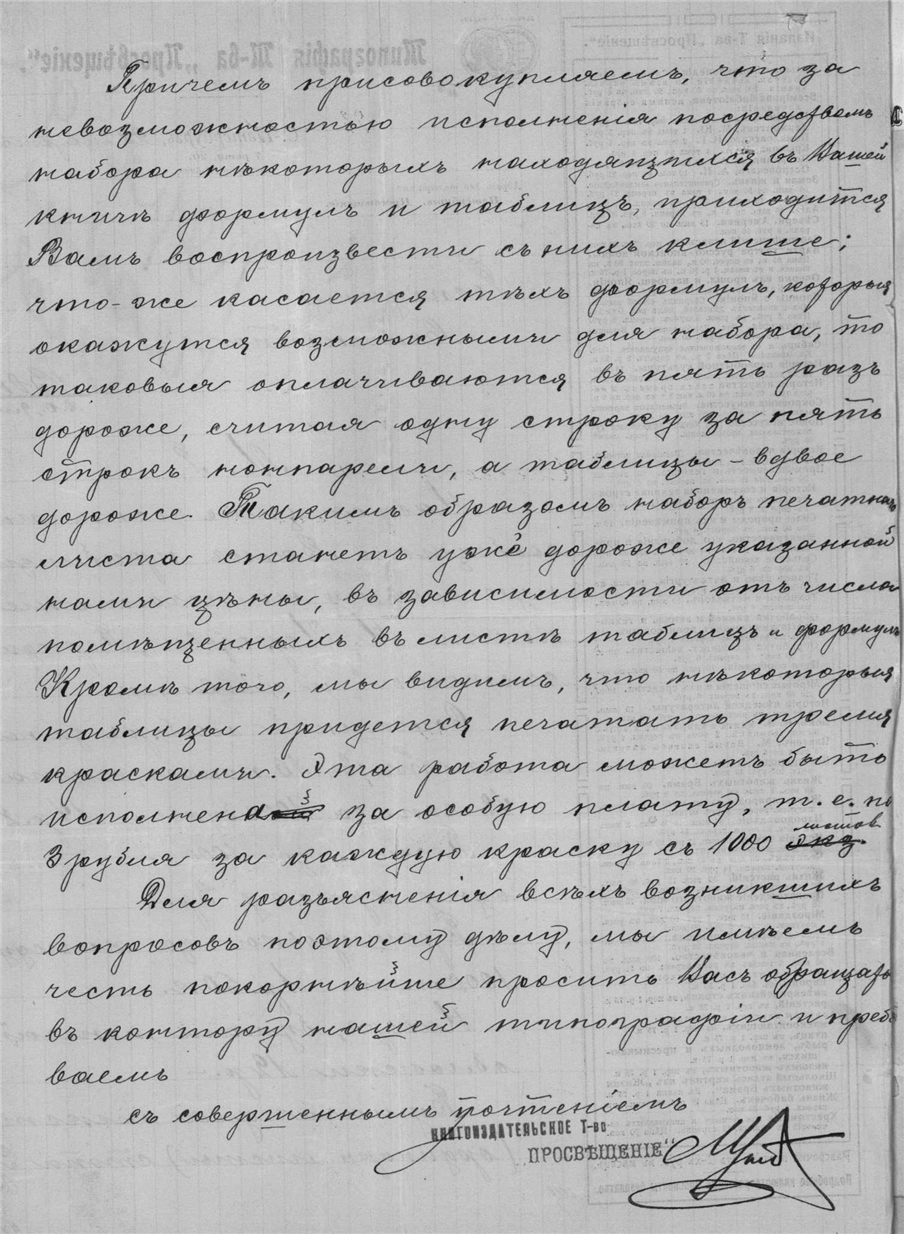 Причемъ присовокупляемъ, что за
невозможностью исполненія посредствомъ
набора нѣкоторыхъ находящихся въ Вашей
книгѣ формулъ и таблицъ, приходится
Вамъ воспроизвести съ нихъ клише;
что-же касается тѣхъ формулъ, которыя
окажутся возможными для набора, то
таковыя оплачиваются въ пять разъ
дороже, считая одну строку за пять
строкъ нонпарели, а таблицы – вдвое
дороже. Такимъ образомъ наборъ печатнаго
листа станетъ уже дороже указанной
нами цѣны, въ зависимости отъ числа
помѣщенныхъ въ листѣ таблицъ и формулъ
Кромѣ того, мы видимъ, что нѣкоторыя
таблицы придется печатать тремя
красками. Эта работа можетъ быть
исполнена за особую плату, т. е. по
3 рубля за каждую краску съ 1000 листов
Для разъясненія всѣхъ возникшихъ
вопросовъ поэтому дѣлу, мы имѣемъ
честь покорнѣйше просить Васъ обращать
въ контору нашей типографіи и пребы
ваемъ
съ совершеннымъ почтеніемъ
КНИГОИЗДАТЕЛЬСКОЕ Т-во
„ПРОСВѢЩЕНІЕ"